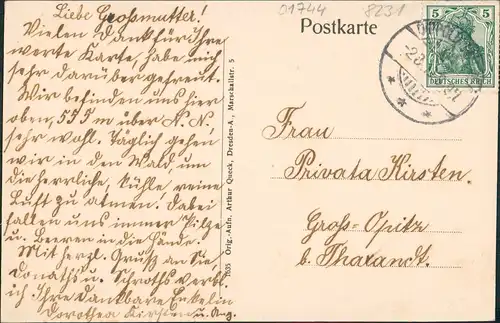 Liebe Großmutter!
Vielen Dank für Ihre
werte Karte, habe mich
sehr darüber gefreut.
Wir befinden uns hier
oben, 555 m über N.N.
sehr wohl. Täglich gehen
wir in den Wald, um
die herrliche, kühle, reine
Luft zu atmen. Dabei
fallen uns immer Pilze
u. Beeren in die Hände.
Mit herzl. Gruß an Sie
Donaths u. Schroths verbl.
ich Ihre dankbare Enkelin
Dorothea Kirsten u. Ang.
1635 Orig.-Aufn. Arthur Queck, Dresden-A., Marschallstr. 5
01744 8231
Postkarte
5 5
DEUTSCHES REICH
Frau
Privata Kirsten.
Groß-Opitz
b. Tharandt.